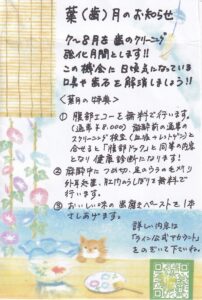 葉(歯)月のお知らせ
7〜8月を歯のクリーニング
強化月間とします!!
この機会に日頃気になっている
口臭や歯石を解消しましょう!!
<葉月の特典>
① 腹部エコーを無料で行います。
(通常¥8,000) 麻酔前の通常の
スクリーニング検査(血液+レントゲン)と
合せると「腹部ドック」と同等の内容
となり健康診断になります!
② 麻酔中につめ切、足のうらの毛刈り
外耳処置、肛門のうしぼりを無料で
行います。
③ おいしい味の歯磨きペーストを1本
さしあげます。
詳しい内容は
「ライン公式アカウント」
をのぞいて下さいね。